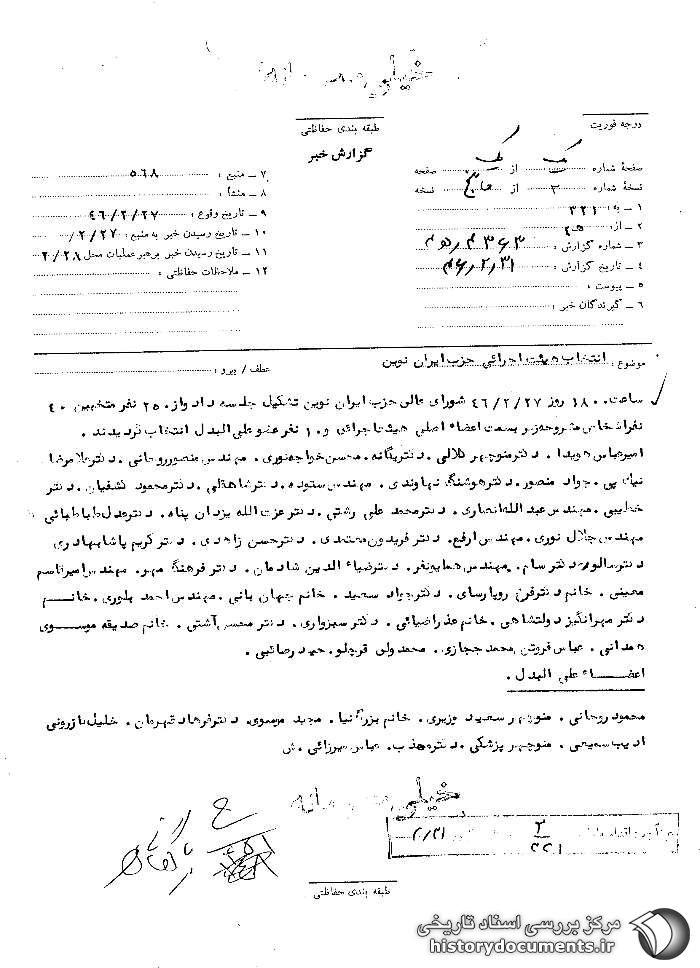 خیلی محرمانه
طبقه بندی حفاظتی
گزارش خبر
درجه فوریت
صفحهٔ شماره یک از یک صفحه
نسخهٔ شماره ۲ از نسخه
۱ ـ به : ۳۲۱
۲ ـ از:
۳ ـ شماره گزارش :
۴ ـ تاریخ گزارش : ۴۶/۲/۳۱
۵ ـ پیوست :
۶ ـ گیرندگان خبر :
۷ ـ منبع : ۵۶۸
۸ ـ منشأ :
۹ ـ تاریخ وقوع : ۴۶/۲/۲۷
۱۰ ـ تاریخ رسیدن خبر به منبع : ۲/۲۷/
۱۱ ـ تاریخ رسیدن خبر برهبر عملیات محل ۲/۲۸
۱۲ ـ ملاحظات حفاظتی :
موضوع : انتخاب هیئت اجرائی حزب ایران نوین
عطف / پیرو :
ساعت ۱۸۰۰ روز ۴۶/۲/۲۷ شورای عالی حزب ایران نوین تشکیل جلسه داد و از ۲۵۰ نفر منتخبین ۴۰
نفر اشخاص مشروحه زیر بسمت اعضاء اصلی هیئت اجرائی و ۱۰ نفر عضو علی البدل انتخاب گردیدند .
امیرعباس هویدا . دکتر منوچهر کلالی . دکتر یگانه . محسن خواجه نوری . مهندس منصور روحانی . دکتر غلامرضا
نیک پی . جواد منصور . دکتر هوشنگ نهاوندی . مهندس ستوده . دکتر شاهقلی . دکتر محمود کشفیان . دکتر
خطیبی . مهندس عبدالله انصاری . دکتر محمد علی رشتی . دکتر عزت الله یزدان پناه . دکتر عدل طباطبائی
مهندس جلال نوری . مهندس ارفع . دکتر فریدون معتمدی . دکتر حسن زاهدی . دکتر کریم پاشابهادری
دکتر سالور . دکتر سام . مهندس همایونفر . دکتر ضیاء الدین شادمان . دکتر فرهنگ مهر . مهندس امیر قاسم
معینی . خانم دکتر فرخ رو پارسای . دکتر جواد سعید . خانم جهان بانی . مهندس احمد بلوری . خانم
دکتر مهرانگیز دولتشاهی . خانم عذرا ضیائی . دکتر سبزواری . دکتر محسن آشتی . خانم صدیقه موسوی
همدانی . عباس فروتن . محمد حجازی . محمد ولی قرچلو . حمید رصائبی .
اعضاء علی البدل .
محمود روحانی . منوچهر سعید وزیری . خانم بزرگ نیا . مجید موسوی . دکتر فرهاد قهرمان . خلیل کازرونی
ادیب سمیعی . منوچهر پزشکی . دکتر مهذب . عباس میرزائی . ش
خیلی محرمانه
بایگانی
۳
۳۲۱
طبقه بندی حفاظتی
مرکز بررسی اسناد تاریخی
historydocuments.ir